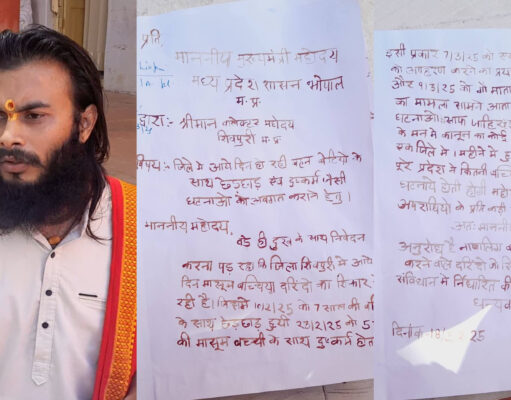 प्रति,
माननीय मुख्यमंत्री महोदय
मध्य प्रदेश शासन भोपाल
म.प्र.
द्वारा:- श्रीमान कलेक्टर महोदय
शिवपुरी म.प्र.
विषय:- जिले मे आये दिन हो रही बहन बेटियो के
साथ छेड़छाड़ एवं दुष्कर्म जैसी
घटनाओं का अवगत कराने हेतु।
माननीय महोदय,
बड़े ही दुख के साथ निवेदन
करना पड़ रहा कि जिला शिवपुरी मे आये
दिन मासूम बच्चिया दरिंदो का सिकार
रही है। 10/2/25 को 7 साल की
के साथ छेड़छाड़ हुयी 23/2/25 को 5
की मासूम बच्ची के साथ दुष्कर्म होत
इसी प्रकार 7/3/25 को
का अपहरण करने का प्रय
और 9/3/25 को गो माता
का मामला सामने आया
घटनाओं
के मन मे कानून का कोई
एक जिले मे 1 महीने मे
पूरे प्रदेश मे कितनी
घटनाये होती होगी
अपराधियो के प्रति कड़ी
अतः माननीय
अनुरोध है नाबालिग
करने वाले दरिंदो के
संविधान मे निर्धारित की
धन्यव
दिनांक 25